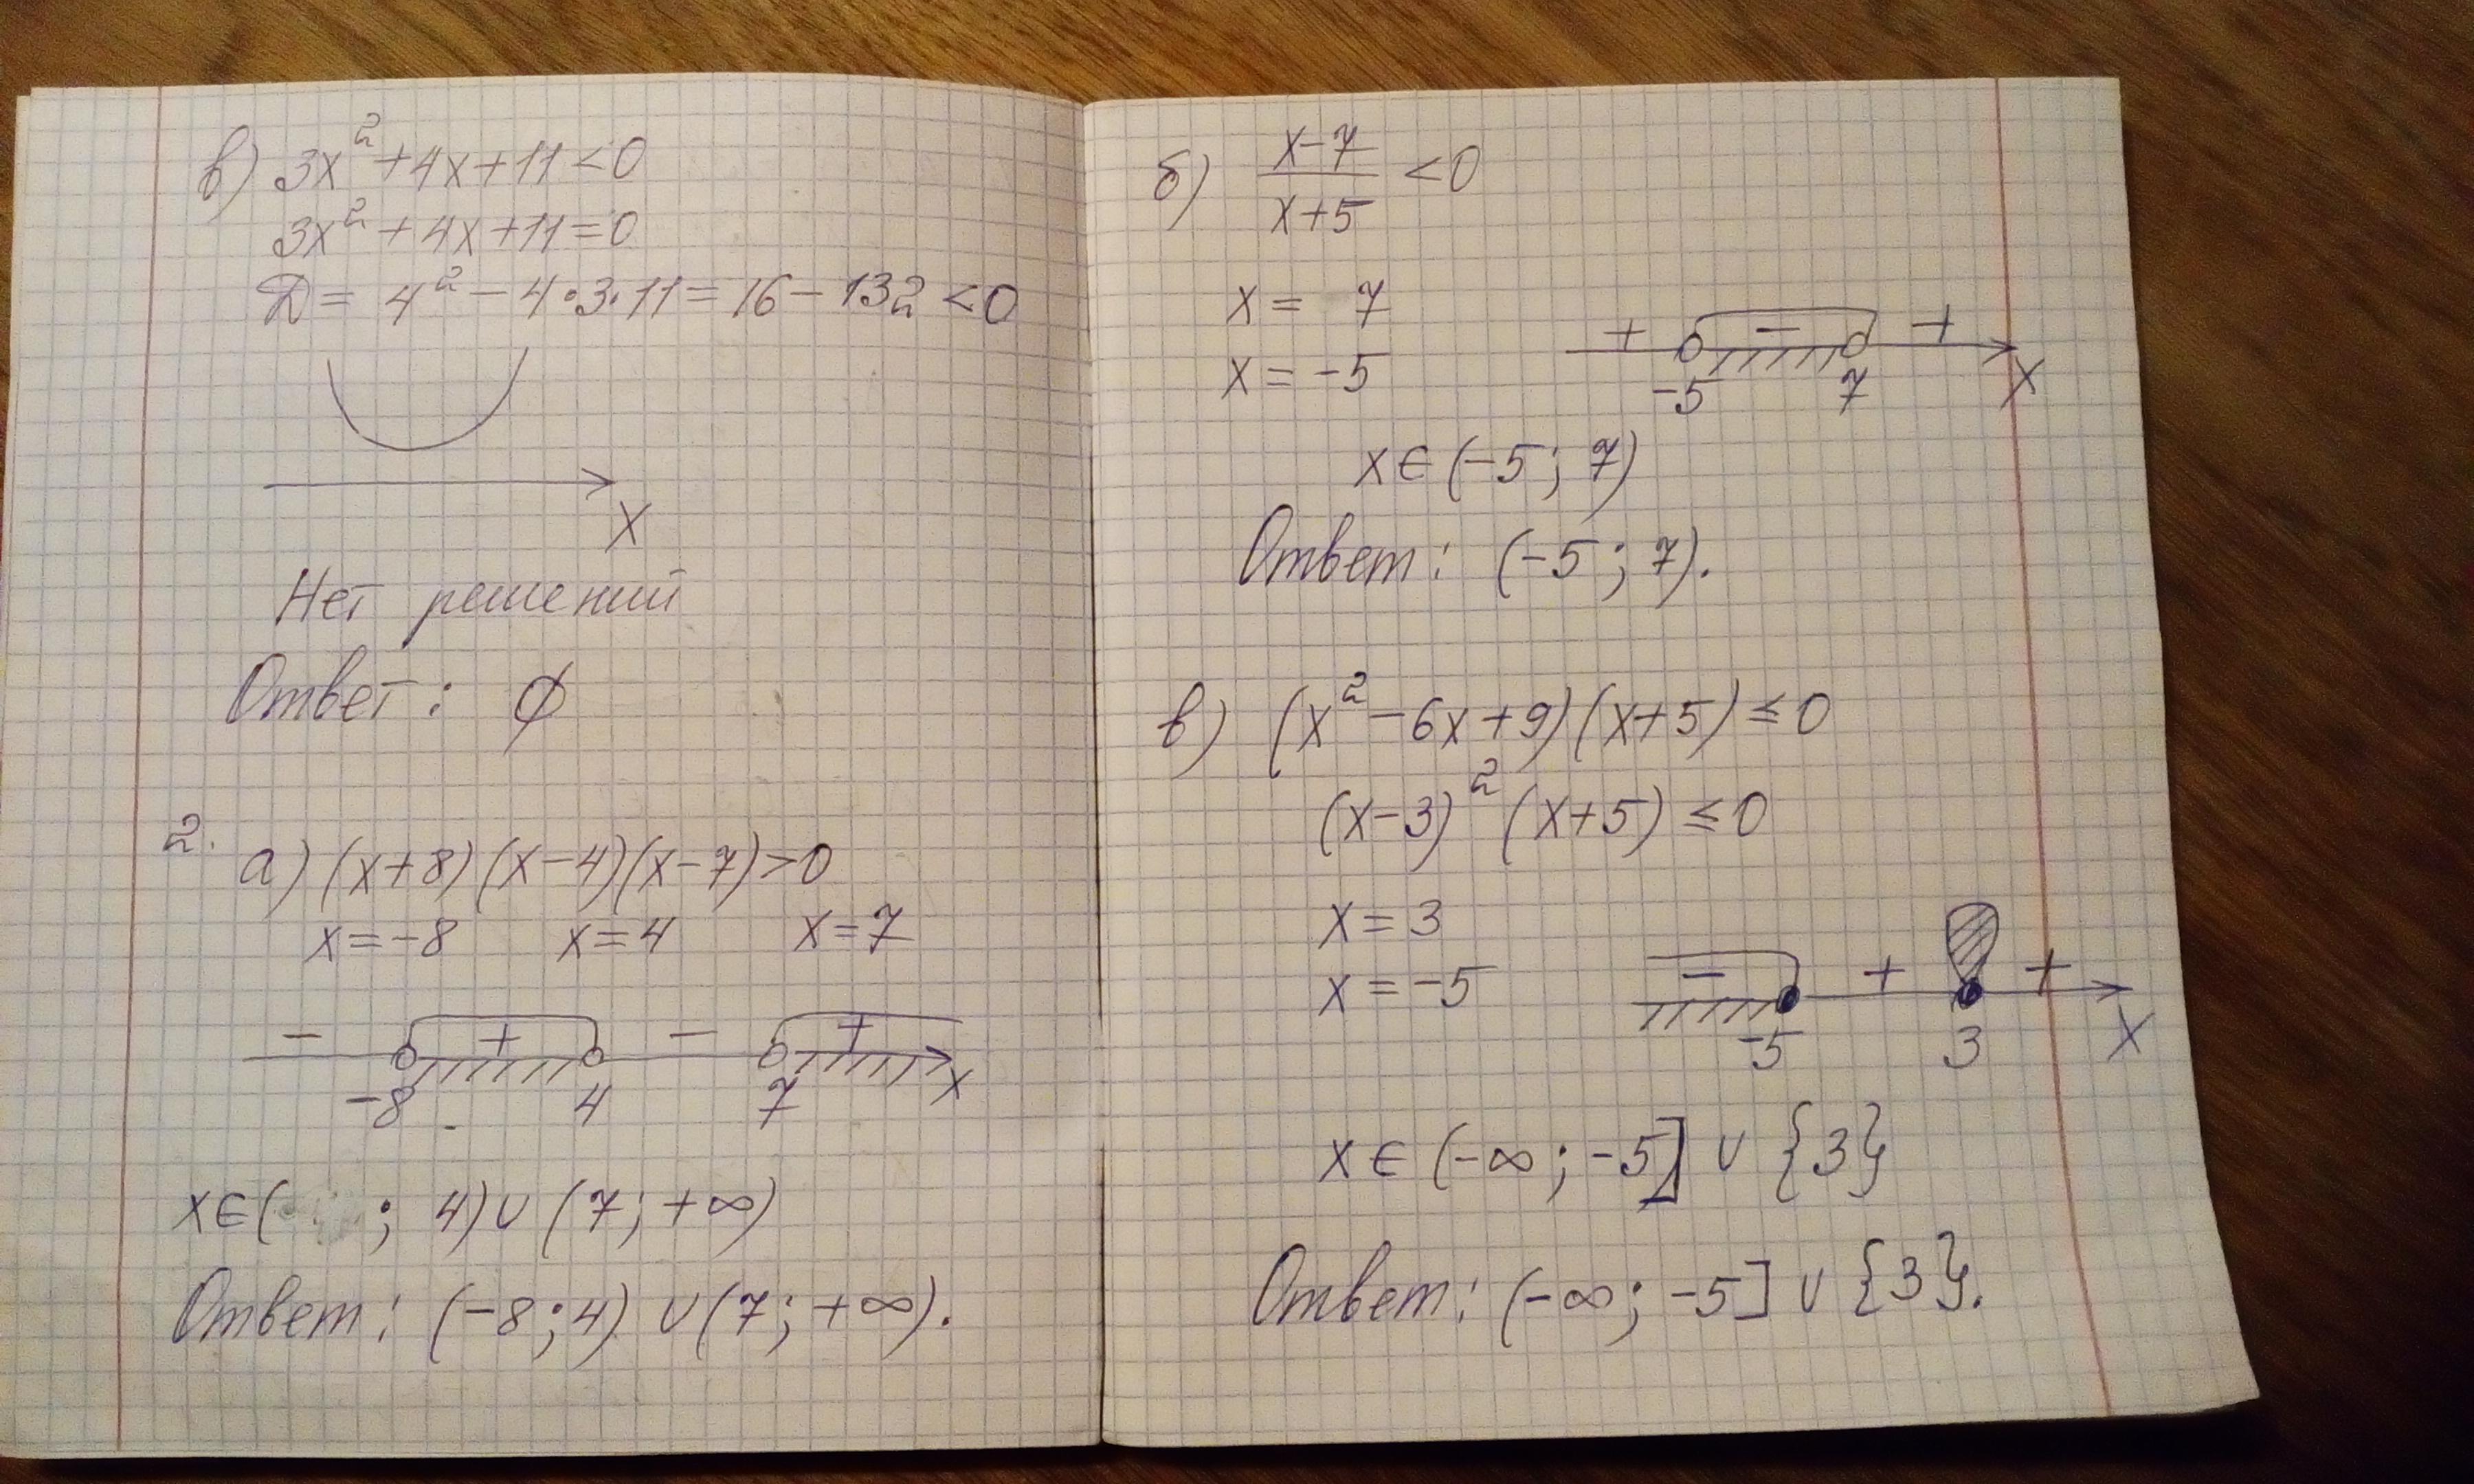 в) 3x² + 4x + 11 < 0
3x² + 4x + 11 = 0
D = 4² - 4·3·11 = 16 - 132 < 0
x
Нет решений
Ответ: ∅
2. а) (x+8)(x-4)(x-7)>0
x=-8 x=4 x=7
- + - +
-8 4 7 x
x∈( ; 4)∪(7; +∞)
Ответ: (-8; 4) ∪ (7; +∞).
б) (x-7)/(x+5) < 0
x = 7
x = -5
+ - +
-5 7 x
x∈(-5; 7)
Ответ: (-5; 7).
в) (x² - 6x + 9)(x+5) ≤ 0
(x-3)² (x+5) ≤ 0
x = 3
x = -5
- + +
-5 3 x
x∈(-∞; -5] ∪ {3}
Ответ: (-∞; -5] ∪ {3}.